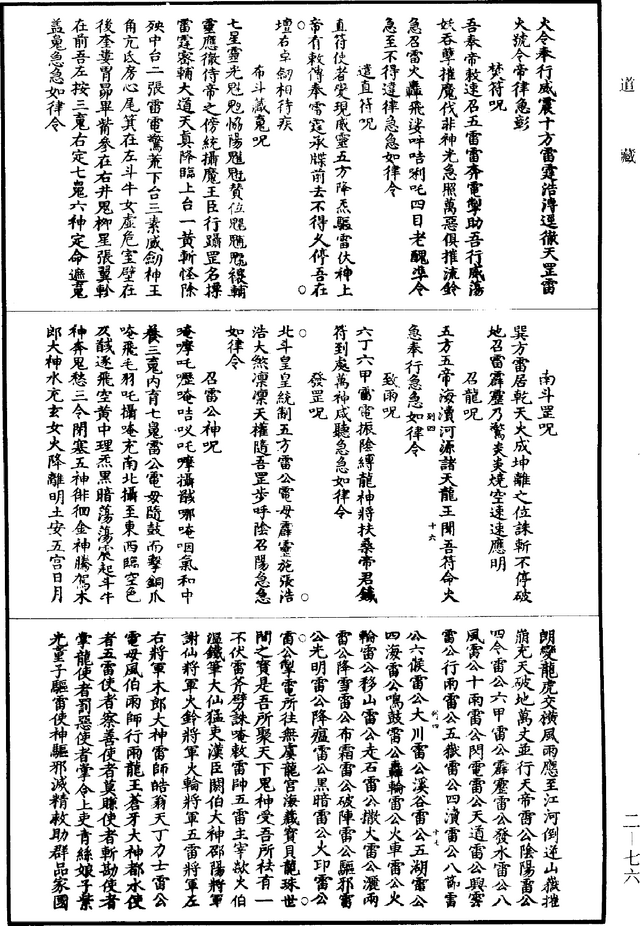 道藏
火令奉行威震十方雷霆浩漙逕徹天罡雷
火號令帝律急彭
焚符呪
吾奉帝敕速召五雷雷奔電掣助吾行威蕩
妖吞孽摧魔伐非神光急照萬惡俱摧流鈴
急召雷火轟飛娑吽唶唎吒四目老醜準令
急至不得違律急急如律令
遣直符呪
直符使者變現威靈五方降炁驅雷伏神上
帝有敕傅奉雷霆承牒前去不得久停吾在
壇右卓劒相待疾
布斗藏嵬呪
七星靈光
靈應徹侍帝之傍統攝魔王臣行躡罡名標
雷霆密輔大道天真降臨上台一黃斬怪除
殃中台二張雷電驚荒下台三素威劒神王
角亢氐房心尾箕在左斗牛女虛危室壁在
後奎婁胃昴畢觜參在右井鬼柳星張翼軫
在前吾左按三嵬右定七嵬六神定命遮嵬
蓋嵬急急如律令
南斗罡呪
巽方雷居乾天火成坤離之位誅斬不停破
地召雷霹靂乃驚炎炎燒空速速應明
召龍呪
五方五帝海瀆河源諸天龍王聞吾符命火
急奉行急急如律令
致雨呪
六丁六甲雷電振陰縛龍神將扶桑帝君鐵
符到處萬神咸聽急急如律令
發罡呪
北斗皇皇統制五方雷公電母霹靂施張浩
浩大煞凜凜天權隨吾罡步呼陰召陽急急
如律令
召雷公神呪
唵摩吒㘑唵唶㕧吒摩攝馘哪唵咽氣和中
養三嵬內育七嵬雷公電母隨鼓而擊銅爪
唵飛毛羽吒攝唵充南北攝至東西臨空色
及馘逐飛空黃中理炁黑暗蕩蕩震起斗牛
神奔鬼愁三令閉塞五神徘徊金神騰駕木
郎大神水充玄女火降離明土安五宮日月
朗變龍虎交橫風雨應至江河倒逆山嶽摧
崩充天破地萬丈並行天帝雷公陰陽雷公
四令雷公六甲雷公霹靂雷公發水雷公八
風雷公十雨雷公閃電雷公天道雷公興雲
雷公行雨雷公五嶽雷公四瀆雷公八節雷
公六候雷公大川雷公溪谷雷公五湖雷公
四海雷公鳴鼓雷公轟輪雷公火車雷公火
輪雷公移山雷公走石雷公撒火雷公灑雨
雷公降雪雷公布霜雷公破陣雷公驅邪雷
公光明雷公降瘟雷公黑暗雷公火印雷公
雷公掣電所往無虞龍宮海藏寶貝龍珠世
間之寶是吾所聚天下鬼神受吾所祛有一
不伏雷斧劈誅唵敕雷帥五雷主宰欻火伯
溫鐵筆大仙猛吏漢臣闕伯大神邵陽將軍
謝仙將軍火鈴將軍火輪將軍五雷將軍左
右將軍木郎大神雷師皓翁天丁力士雷公
電母風伯雨師行雨龍王蒼牙大神都水使
者五雷使者察善使者莫賺使者斬勘使者
掌龍使者罰惡使者掌令上吏青絲娘子業
光童子驅雷使神驅邪滅精救助群品家國
二—七六